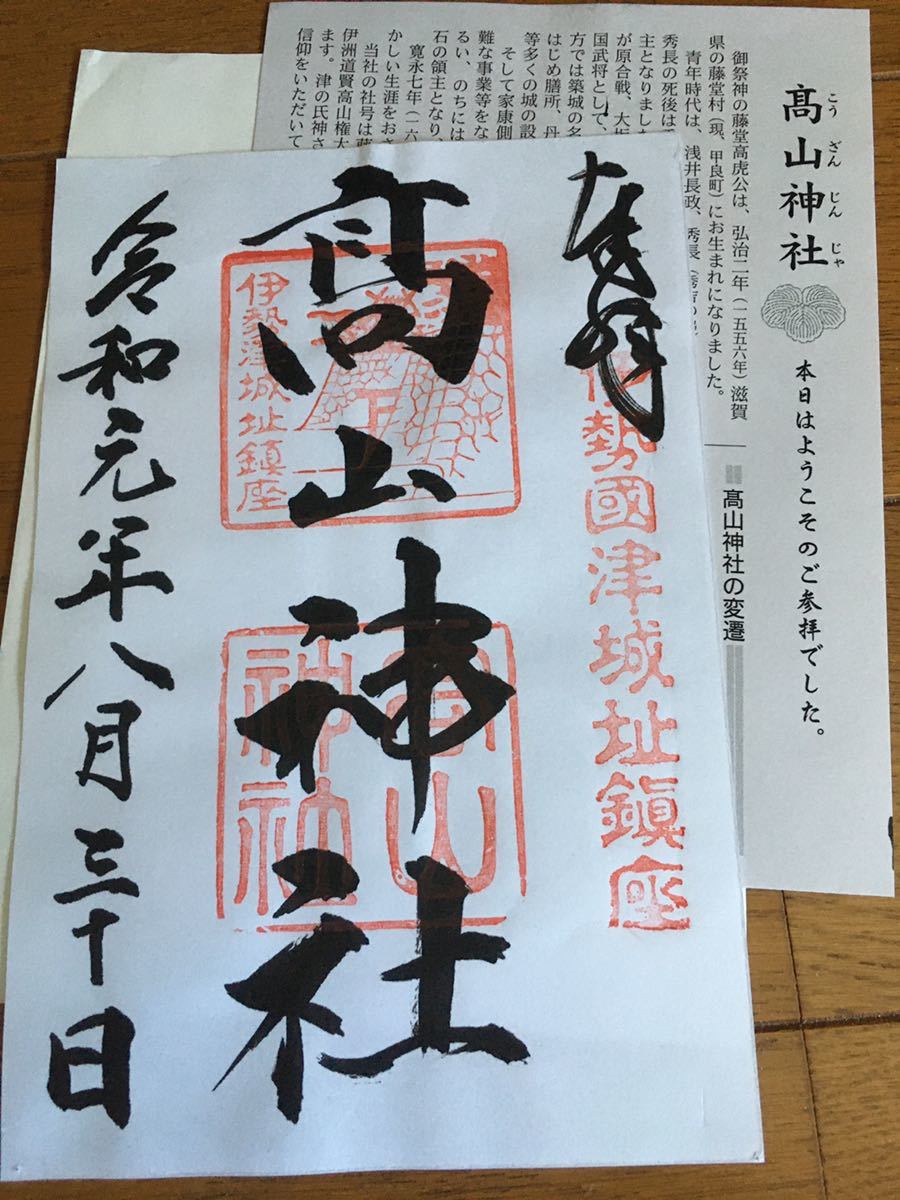 奉拝
伊勢國津城址鎮座
髙山神社
伊勢津城址鎮座
高山
神社
令和元年八月三十日
髙山神社
こうざんじんじゃ
本日はようこそのご参拝でした。
髙山神社の変遷
御祭神の藤堂高虎公は、弘治二年(一五五六年)滋賀
県の藤堂村(現、甲良町)にお生まれになりました。
青年時代は、浅井長政、秀長
秀長の死後は
主となりました
が原合戦、大坂
国武将として、
方では築城の名
はじめ膳所、丹
等多くの城の設
そして家康側
難な事業等をな
るい、のちには
石の領主となり、
寛永七年(一六
かしい生涯をおさ
当社の社号は藤
伊洲道賢高山権大
ます。津の氏神さ
信仰をいただいて